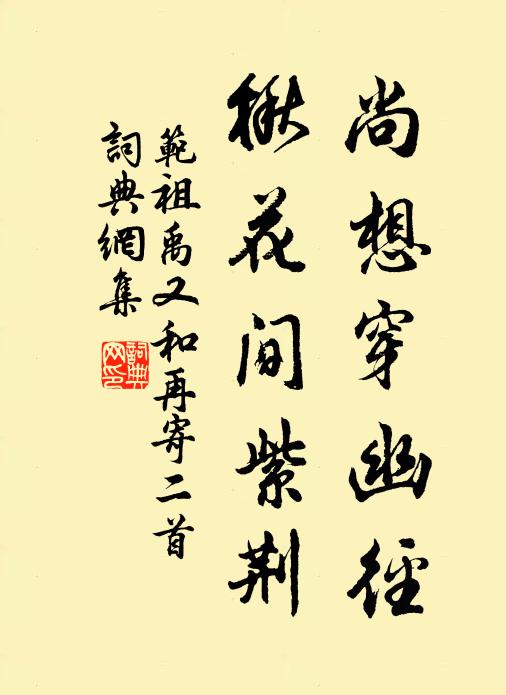 尚想穿幽徑
楸花間紫荆
範祖禹又和再寄二首
詞典網集
詞典
网印